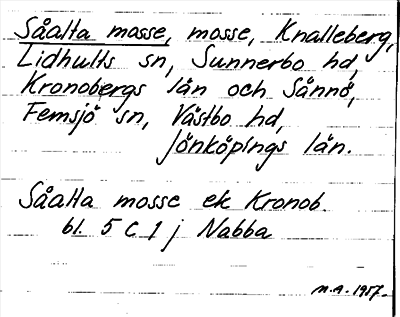 Såalta mosse, mosse, Knalleberg,
Lidhults sn, Sunnerbo hd,
Kronobergs län och Sännö,
Femsjö sn, Västbo hd,
Jönköpings län.
Såalta mosse ek Kronob.
bl. 5 C 1 j Nabba
M.A. 1957.